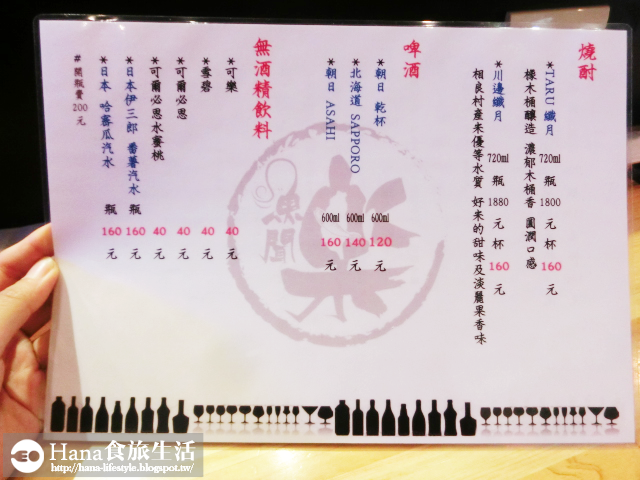 燒酎
*TARU 纖月 720ml 瓶 1800 元 杯 160 元
橡木桶釀造 濃郁木桶香 圓潤口感
*川邊纖月 720ml 瓶 1880 元 杯 160 元
相良村産米優等水質 好米的甜味及淡麗果香味
啤酒
朝日 乾杯 600ml 120 元
*北海道 SAPPORO 600ml 140 元
*朝日 ASAHI 600ml 160 元
無酒精飲料
*可樂 40 元
*雪碧 40 元
*可爾必思 40 元
*可爾必思水蜜桃 40 元
*日本伊三郎 番薯汽水 瓶 160 元
*日本 哈蜜瓜汽水 瓶 160 元
#開瓶費 200 元
樂
Hana食旅生活
http://hana-lifestyle.blogspot.tw/